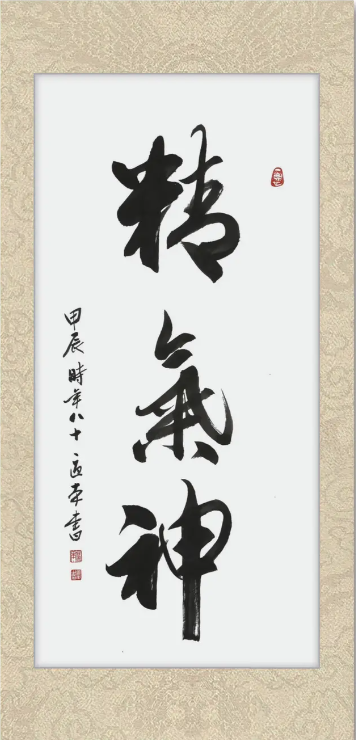 精氣神
甲辰時年八十
書